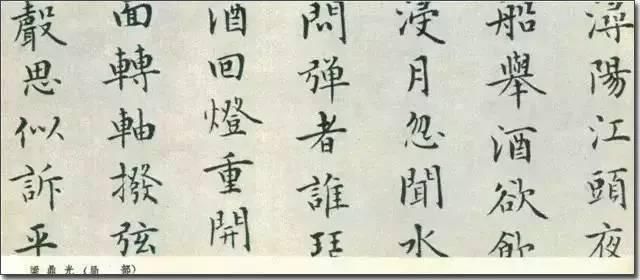 潯陽江頭夜
船舉酒欲飲
浸月忽聞水
問弹者誰琵
酒回燈重開
面轉軸撥弦
聲思似訴平
梁鼎光（局部）